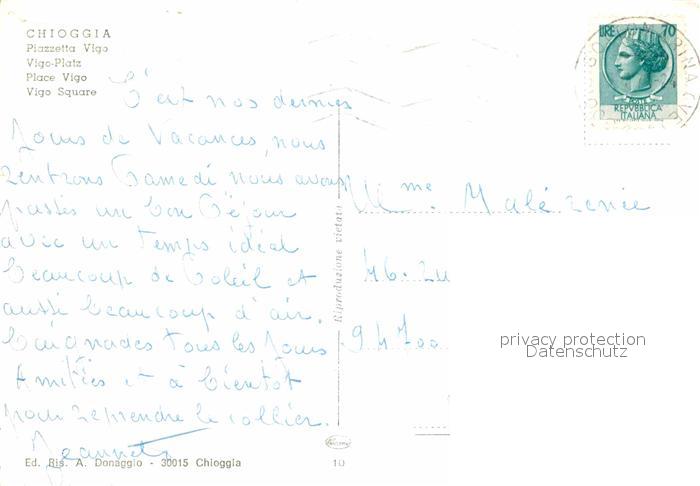 CHIOGGIA
Piazzetta Vigo
Vigo-Platz
Place Vigo
Vigo Square
C'est nos dernies
Jours de Vacances, nous
rentrons Samedi nous avons
passés un bon Séjour
avec un temps idéal
beaucoup de Soleil et
aussi beaucoup d'air.
tous les Jours
Amitiés et à bientôt
pour reprendre le collier.
Jeannette
Ed. Ris. A. Donaggio - 30015 Chioggia
10
Riproduzione vietata
LIRE 70
REPVBBLICA
ITALIANA
Mme Malézenie
46.24
94700
privacy protection
Datenschutz